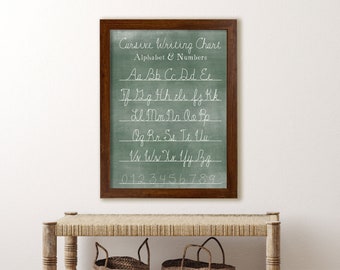 Cursive Writing Chart
Alphabet & Numbers
Aa Bb Cc Dd Ee
Ff Gg Hh Ii Jj Kk
Ll Mm Nn Oo Pp
Qq Rr Ss Tt Uu
Vv Ww Xx Yy Zz
0 1 2 3 4 5 6 7 8 9